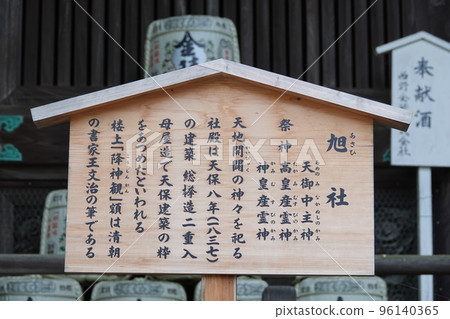 旭社
あさひ
天御中主神
祭神 高皇産霊神
神皇産霊神
天地開闢の神々を祀る
社殿は天保八年(一八三七)
の建築 総欅造 二重入
母屋造で天保建築の粋
をあつめたといわれる
楼上「降神観」額は清朝
の書家王文治の筆である
奉献酒
西野金陵株式会社
金陵
96140365